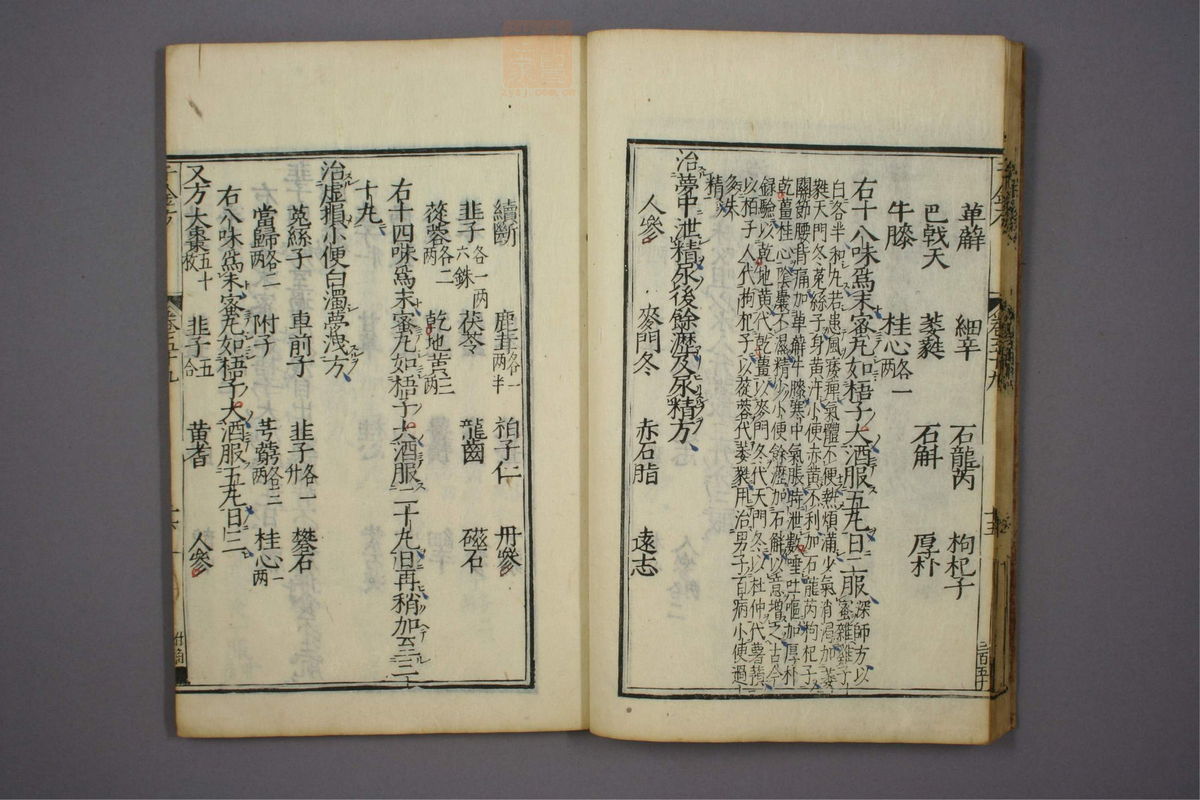 萆薢　細辛　石龍芮　枸杞子
巴戟天　葳蕤　石斛　厚朴
牛膝　桂心各一两
右十八味爲末蜜丸如梧子大酒服五丸日二服深師方以蜜雜雞子
白各半和丸若患風痿痺氣體不便熱煩滿少氣消渴加葳
蕤天門冬菟絲子身黃汗小便赤黃不利加石龍芮枸杞子
關節腰背痛加萆薢牛膝寒中氣脹時泄數唾吐嘔加厚朴
乾薑桂心陰囊下濕精少小便餘瀝加石斛以意增之古今
錄驗以乾地黃代乾薑以麥門冬代天門冬以杜仲代
以柏子人代枸杞子以蓯蓉代葳蕤用治男子百病小便過
多失
精
治夢中泄精尿後餘瀝及尿精方
人參　麥門冬　赤石脂　遠志
續斷　鹿茸各一两半　柏子仁　丹參
韭子各一两六銖　茯苓　龍齒　磁石
蓯蓉各二两　乾地黃三两
右十四味爲末蜜丸如梧子大酒服二十丸日再稍加至三十
十丸
治虛損小便白濁夢洩方
菟絲子　車前子　韭子各一升　礬石
當歸各二两　附子　芎藭各三两　桂心一两
右八味爲末蜜丸如梧子大酒服五丸日三
又方大棗五十枚　韭子五合　黃耆　人參